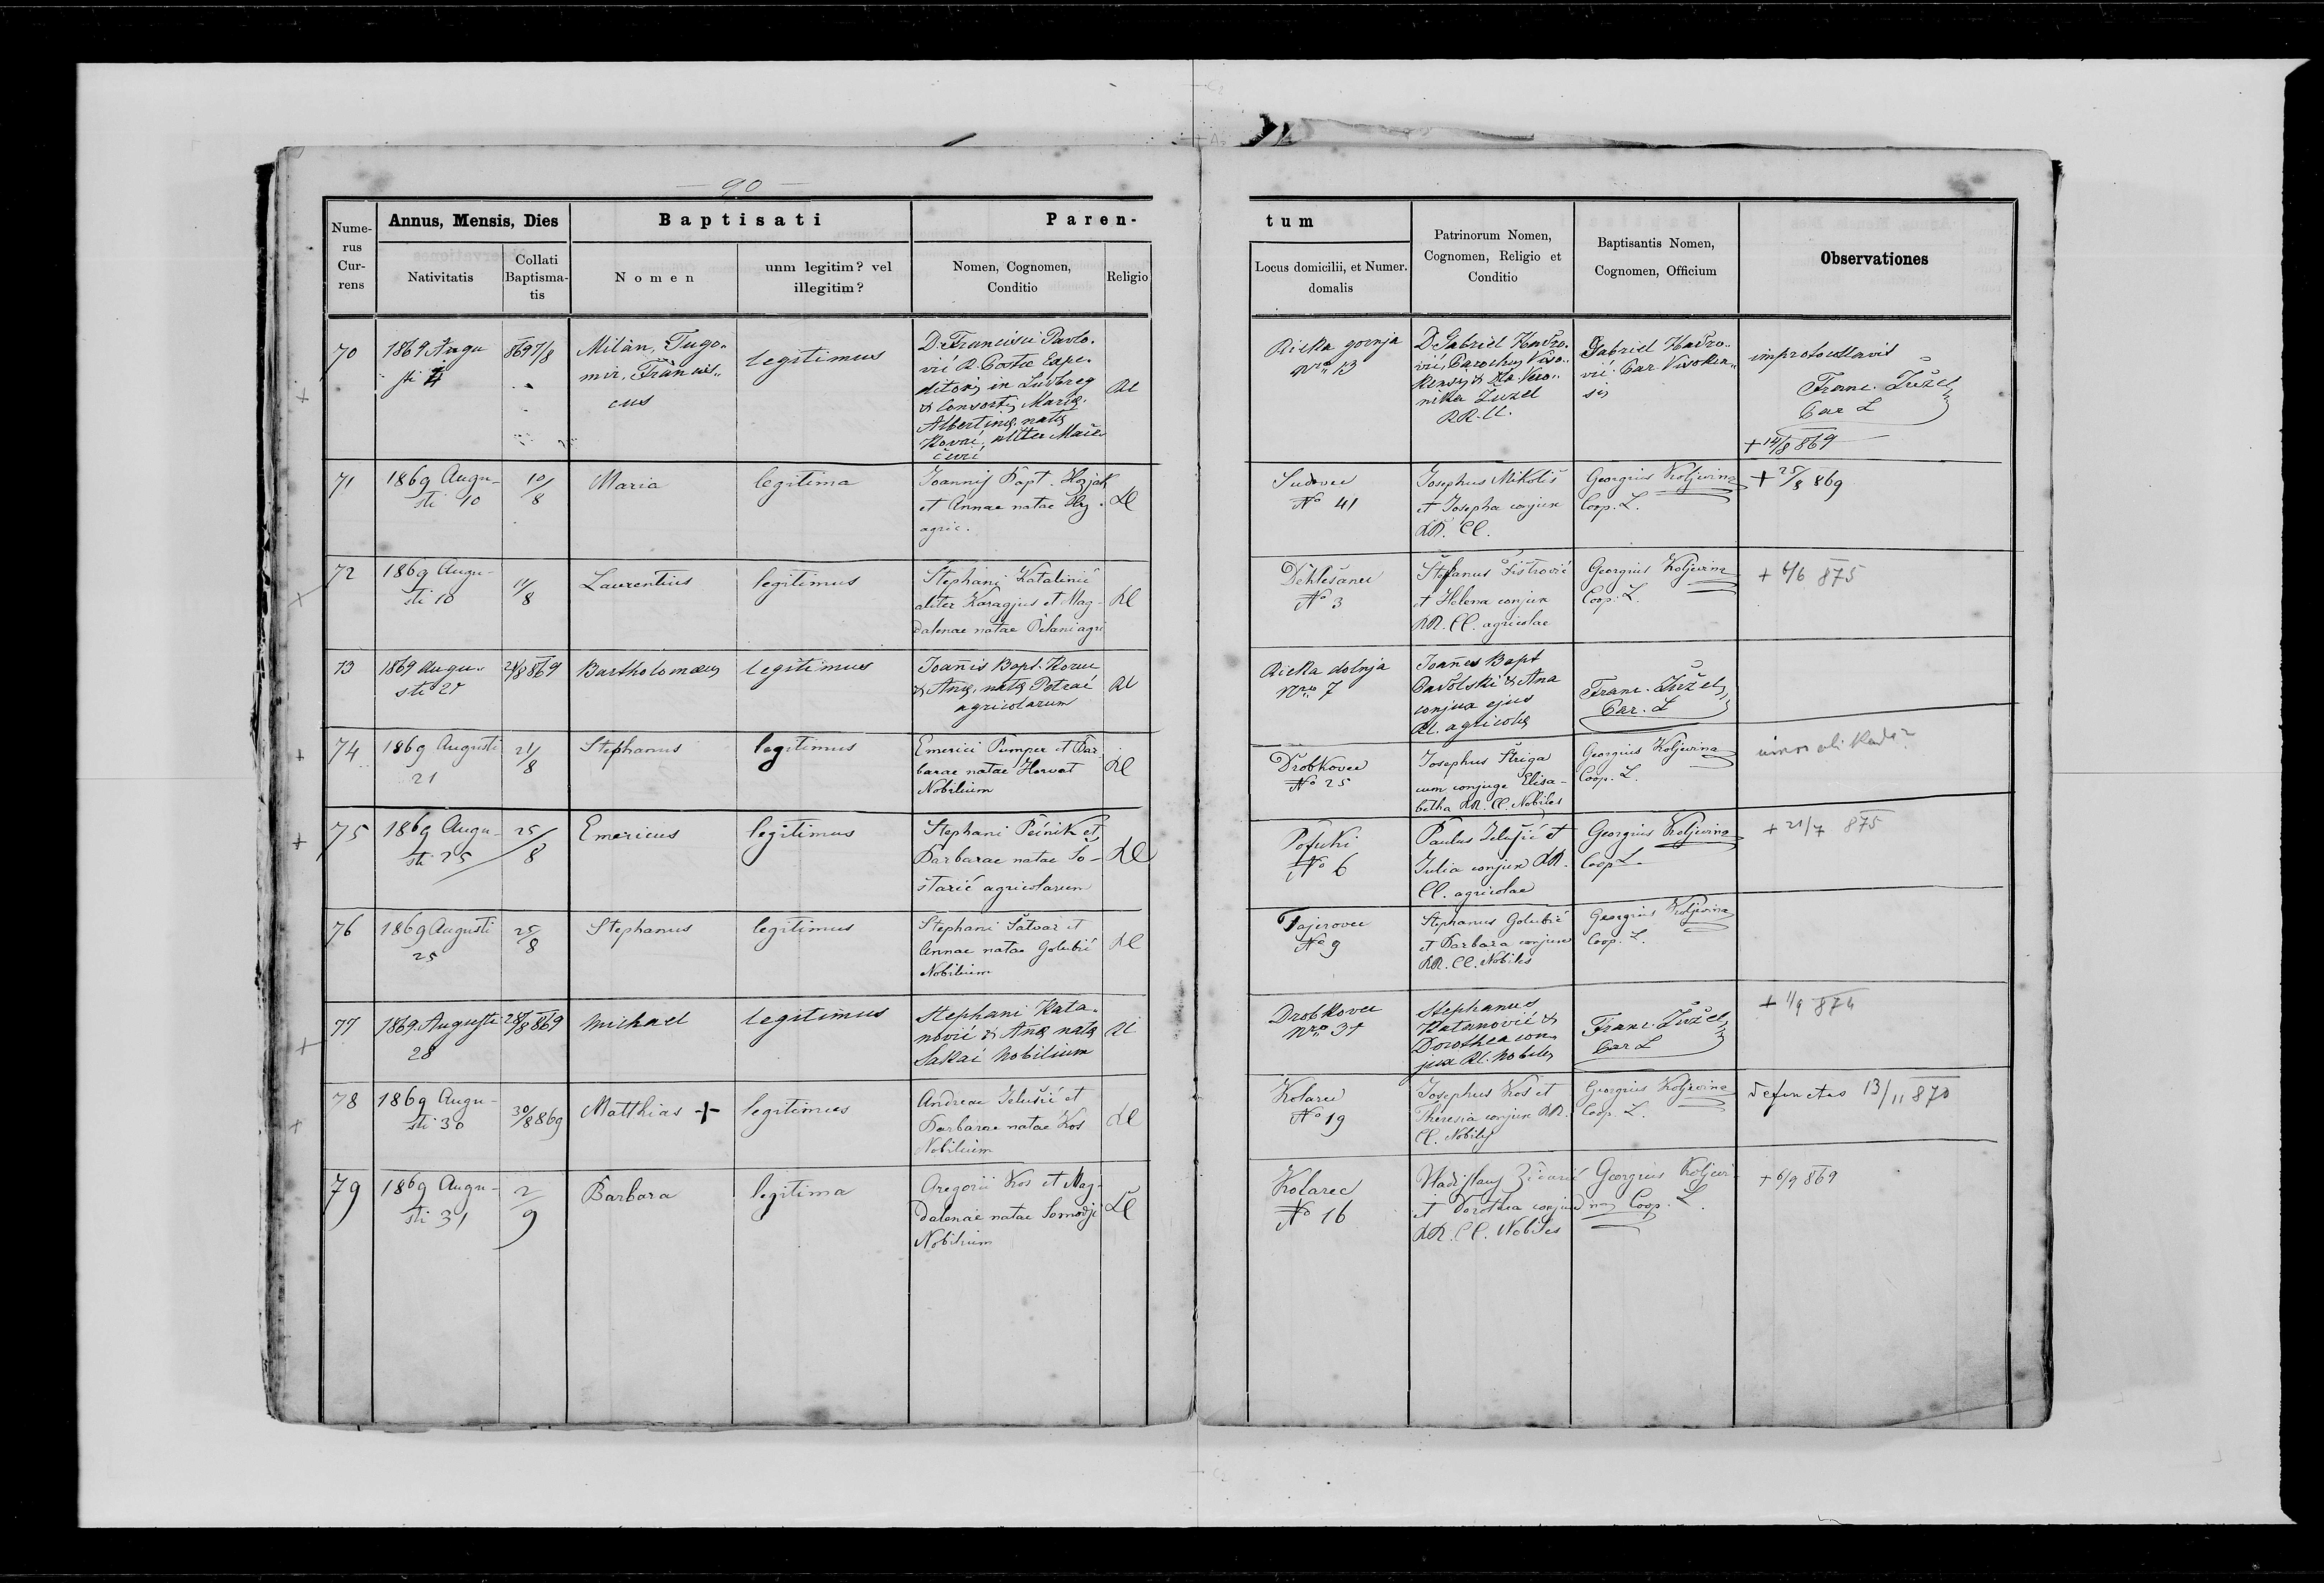 90
Numerus Currens
Annus, Mensis, Dies
Nativitatis
Collati Baptismatis
Baptisati
Nomen
unm legitim? vel illegitim?
Paren-
Nomen, Cognomen, Conditio
Religio
tum
Locus domicilii, et Numer. domalis
Patrinorum Nomen, Cognomen, Religio et Conditio
Baptisantis Nomen, Cognomen, Officium
Observationes
70
1869 Augu
sti 4
869 7/8
Milan, Tugo-
mir, Francis-
cus
legitimus
D. Francisci Pavlo-
vić R. Postae Expe-
ditoris in Ludbreg
& Consortis Mariae
Albertinae natae
Kovač, aliter
RC
Rieka gornja
Nro 13
D. Gabriel Kadro-
vić, Parochus Viso-
kensis & Vero-
nika Žužel
RR. CC.
Gabriel Kadro-
vić Par Visoken-
sis
improtocollavit
Franc. Žužel
Par L
+ 14/8 869
71
1869 Augu-
sti 10
10/8
Maria
legitima
Joannis Bapt. Hozjak
et Annae natae
agric.
RC
Sudovec
No 41
Josephus Mikoliš
et Josepha conjux
RR. CC.
Georgius Koljevina
Coop. L.
+ 25/8 869
72
1869 Augu-
sti 10
11/8
Laurentius
legitimus
Stephani Katalinić
aliter Karagjus et Mag-
dalenae natae agri
RC
No 3
Štefanus Fištrović
et Helena conjux
RR. CC. agricolae
Georgius Koljevina
Coop. L.
+ 6/6 875
73
1869 Augu-
sti 21
21/8 869
Bartholomaeus
legitimus
Joannis Bapt.
& Anae, natae Petrač
agricolarum
RC
Rieka dolnja
Nro 7
Joannes Bapt
& Ana
conjux ejus
RC. agricolae
Franc. Žužel
Par. L
74
1869 Augusti
21
21/8
Stephanus
legitimus
Emerici Pumper et Bar
barae natae Horvat
Nobilium
RC
Drobkovec
No 25
Josephus Striga
cum conjuge Elisa-
betha RR. CC. Nobiles
Georgius Koljevina
Coop. L.
75
1869 Augu-
sti 25
25/8
Emericus
legitimus
Stephani Pčinik et
Barbarae natae Šo-
štarić agricolarum
RC
Pofuki
No 6
Paulus Jelušić et
Julia conjux RR.
CC. agricolae
Georgius Koljevina
Coop L.
+ 21/7 875
76
1869 Augusti
25
25/8
Stephanus
legitimus
Stephani Šatvar et
Annae natae Golubić
Nobilium
RC
Fajerovec
No 9
Stephanus Golubić
et Barbara conjux
RR. CC. Nobiles
Georgius Koljevina
Coop. L.
77
1869 Augusti
28
28/8 869
Michael
legitimus
Stephani Kata-
nović & Anae natae
Sakač Nobilium
RC
Drobkovec
Nro 31
Stephanus
Katanović &
Dorothea con-
jux RC. Nobiles
Franc. Žužel
Par L
+ 1/9 874
78
1869 Augu-
sti 30
30/8 869
Matthias +
legitimus
Andreae Jelušić et
Barbarae natae Kos
Nobilium
RC
Kolarec
No 19
Josephus Kos et
Theresia conjux RR.
CC. Nobiles
Georgius Koljevina
Coop. L.
defunctus 13/11 870
79
1869 Augu-
sti 31
2/9
Barbara
legitima
Gregorii Kos et Mag-
dalenae natae Somodji
Nobilium
RC
Kolarec
No 16
Vladislaus Živarić
et Dorothea conjux
RR. CC. Nobiles
Georgius Koljevi-
na Coop. L.
+ 6/9 869